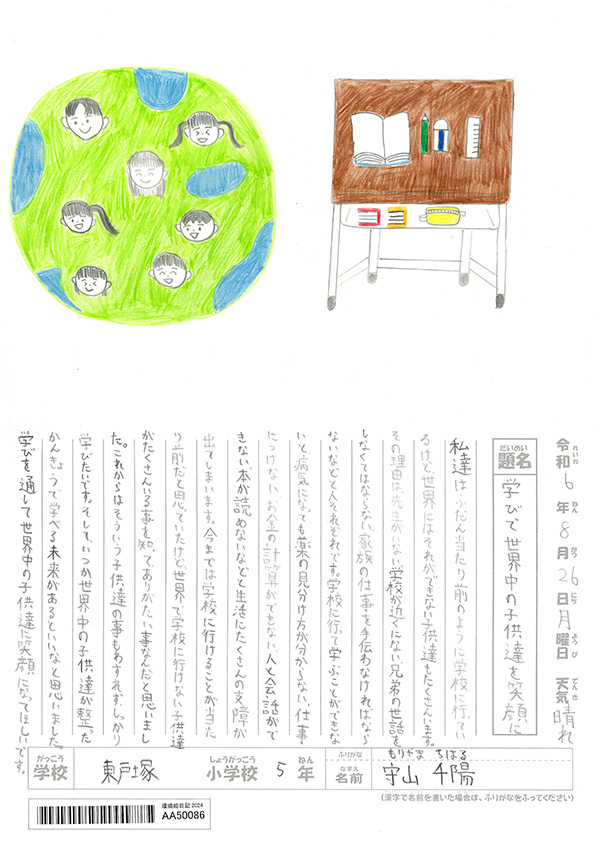 令和れいわ6年ねん8月がつ26日にち月曜日ようび 天気てんき晴れ
題名だいめい 学びで世界中の子供達を笑顔に
私達はふだん当たり前のように学校に行ってい
るけど世界にはそれができない子供達もたくさんいます。
その理由は先生がいない、学校が近くにない、兄弟の世話を
しなくてはならない、家族の仕事を手伝わなければなら
ないなどと人それぞれです。学校に行って学ぶことができな
いと病気になっても薬の見分け方が分からない、仕事
につけない、お金の計算ができない、人と会話がで
きない、本が読めないなどと生活にたくさんの支障が
出てしまいます。今までは学校に行けることが当た
り前だと思っていたけど、世界で学校に行けない子供達
がたくさんいる事を知ってありがたい事なんだと思いまし
た。これからはそういう子供達の事もわすれず、しっかり
学びたいです。そして、いつか世界中の子供達が整った
かんきょうで学べる未来があるといいなと思いました。
学びを通して世界中の子供達に笑顔になってほしいです。
学校がっこう 東戸塚 小学校しょうがっこう 5年ねん
ふりがな もりやま ちはる
名前なまえ 守山 千陽
(漢字で名前を書いた場合は、ふりがなをふってください)
環境絵日記 2024
AA50086